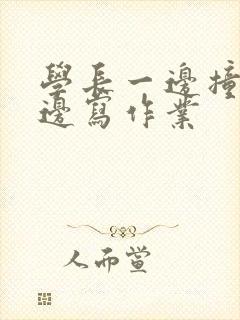 學長一邊撞
邊寫作業
人而黨